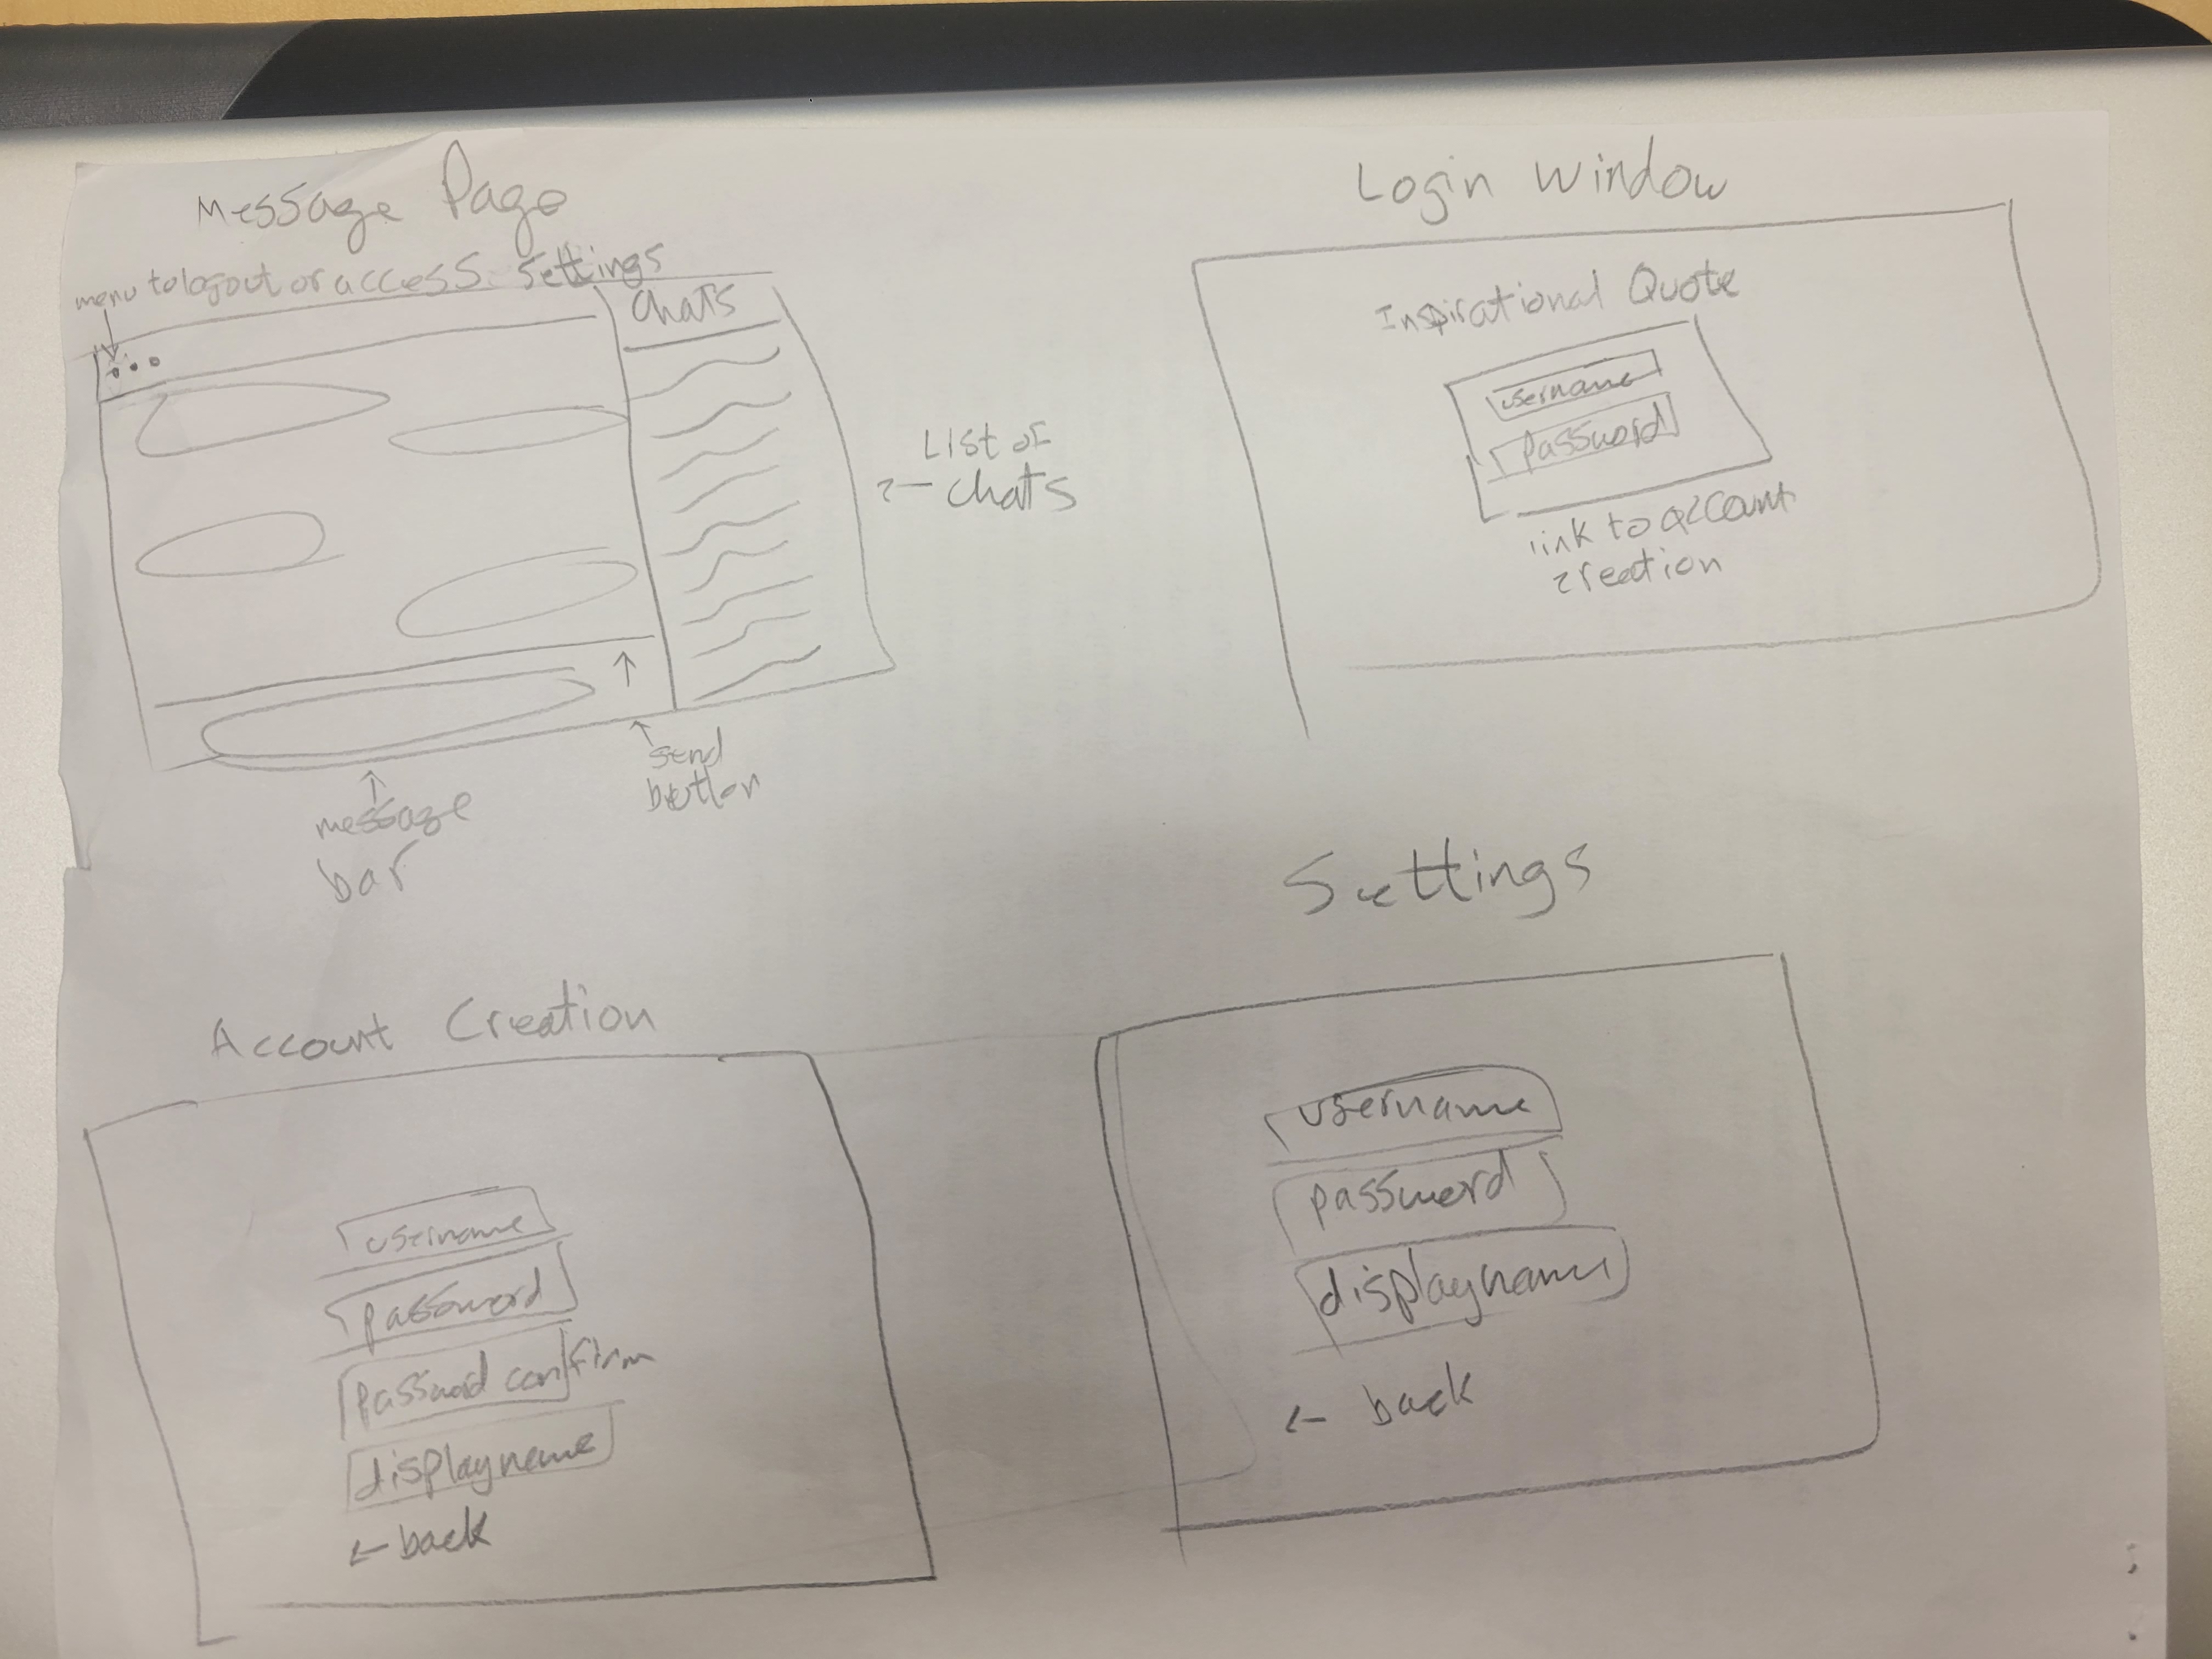 Message Page
menu to logout or access settings
Chats
← List of
chats
send
button
message
bar
Login Window
Inspirational Quote
username
password
link to account
creation
Account Creation
username
password
password confirm
displayname
← back
Settings
username
password
displayname
← back